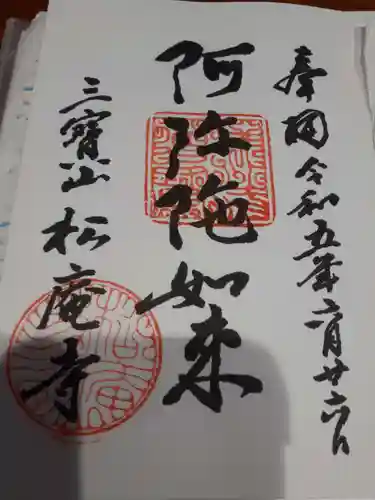 奉閲令和五年六月廿六日
阿弥陀如来
三寳山松庵寺